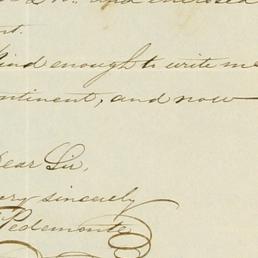 and enclosed
kind enough to write me
ntinent, and now
Dear Sir,
ery sincerely
Pedemonte